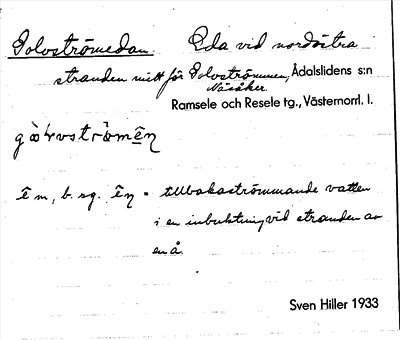 Golvströmedan. Eda vid nordöstra
stranden mitt för Golvströmmen, Ådalslidens s:n
Näsåker
Ramsele och Resele tg., Västernorrl. l.
ē m, b. sg. ēṇ = tillbakaströmmande vatten
i en inbuktning vid stranden av
en å.
Sven Hiller 1933